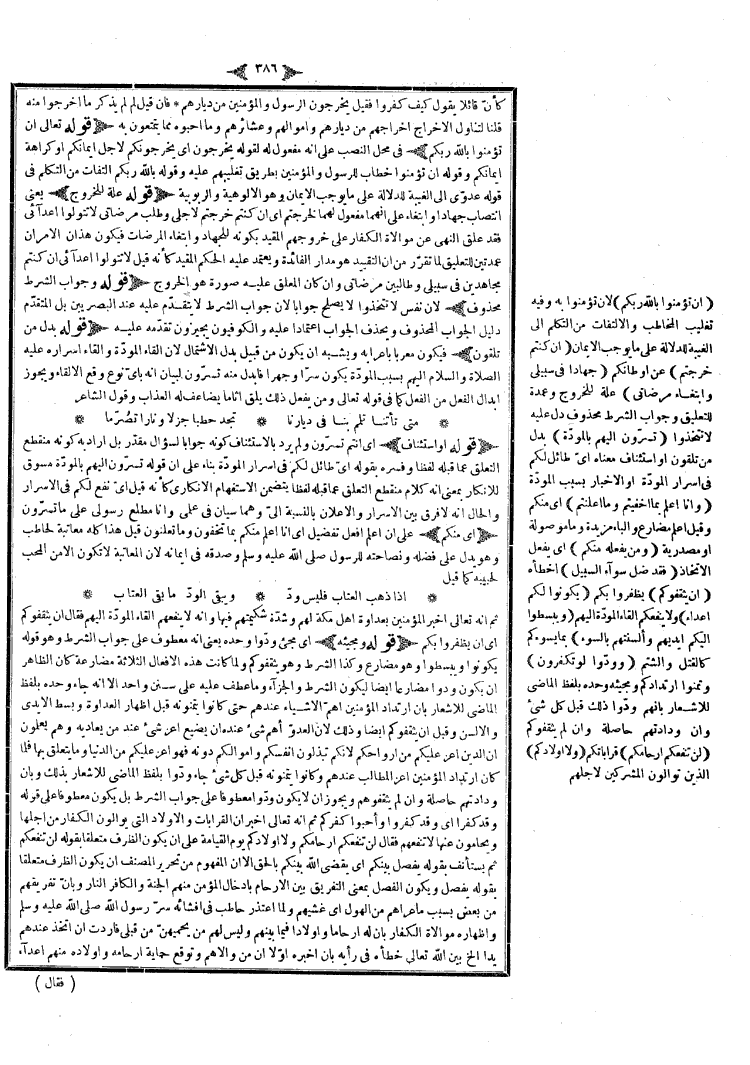 ٣٨٦
كأنّ قائلا يقول كيف كفروا فقيل يخرجون الرسول والمؤمنين من ديارهم * فان قيل لم لم يذكر ما اخرجوا منه
قلنا لتناول الاخراج اخراجهم من ديارهم واموالهم وعشائرهم وما احبوه مما يتمتعون به ﴿ قوله تعالى ان
تؤمنوا بالله ربكم ﴾ فى محل النصب على انه مفعول له لقوله يخرجون اى يخرجونكم لاجل ايمانكم او كراهة
ايمانكم وقوله ان تؤمنوا خطاب للرسول والمؤمنين بطريق تغليبهم عليه وقوله بالله ربكم التفات من التكلم فى
قوله عدوّى الى الغيبة للدلالة على ما يوجب الايمان وهو الالوهية والربوبية ﴿ قوله علة للخروج ﴾ يعنى
انتصاب جهادا وابتغاء على انهما مفعول لهما لخرجتم اى ان كنتم خرجتم لاجلى وطلب مرضاتى لا تتولوا اعدآئى
فقد علق النهى عن موالاة الكفار على خروجهم المقيد بكونه للجهاد وابتغاء المرضات فيكون هذان الامران
عمدتين للتعليق لما تقرر من ان التقييد هو مدار الفائدة ويعتمد عليه الحكم المقيد كأنه قيل لا تتولوا اعدآئى ان كنتم
مجاهدين فى سبيلى وطالبين مرضاتى وان كان المعلق عليه صورة هو الخروج ﴿ قوله وجواب الشرط
محذوف ﴾ لان نفس لا تتخذوا لا يصلح جوابا لان جواب الشرط لا يتقدّم عليه عند البصريين بل المتقدّم
دليل الجواب المحذوف ويحذف الجواب اعتمادا عليه والكوفيون يجيزون تقدمه عليه ﴿ قوله بدل من
تلقون ﴾ فيكون معربا باعرابه ويشبه ان يكون من قبيل بدل الاشتمال لان القاء المودّة والقاء اسراره عليه
الصلاة والسلام اليهم بسبب المودّة يكون سرّا وجهرا فابدل منه تسرّون لبيان انه باىّ نوع وقع الالقاء ويجوز
ابدال الفعل من الفعل كما فى قوله تعالى ومن يفعل ذلك يلق اثاما يضاعف له العذاب وقول الشاعر
* متى تأتنا تلم بنا فى ديارنا * تجد حطبا جزلا ونارا تضرّما *
﴿ قوله او استئناف ﴾ اى انتم تسرّون ولم يرد بالاستئناف كونه جوابا لسؤال مقدّر بل اراد به كونه منقطع
التعلق عما قبله لفظا وفسره بقوله اىّ طائل لكم فى اسرار المودّة بناء على ان قوله تسرّون اليهم بالمودّة مسوق
للانكار بمعنى انه كلام منقطع التعلق عما قبله لفظا يتضمن الاستفهام الانكارى كأنه قيل اىّ نفع لكم فى الاسرار
والحال انه لا فرق بين الاسرار والاعلان بالنسبة الىّ وهما سيان فى علمى وانا مطلع رسولى على ما تسرّون
﴿ اى منكم ﴾ على ان اعلم افعل تفضيل اى انا اعلم منكم بما تخفون وما تعلنون قيل هذا كله معاتبة لحاطب
وهو يدل على فضله ونصاحته للرسول صلى الله عليه وسلم وصدقه فى ايمانه لان المعاتبة لا تكون الا من المحب
لحبيبه كما قيل
* اذا ذهب العتاب فليس ودّ * ويبقى الودّ ما بقى العتاب *
ثم انه تعالى اخبر المؤمنين بعداوة اهل مكة لهم وشدّة شكيمتهم فيها وانه لا ينفعهم القاء المودّة اليهم فقال ان يثقفوكم
اى ان يظفروا بكم ﴿ قوله ومجيئه ﴾ اى مجئ ودّوا وحده يعنى انه معطوف على جواب الشرط وهو قوله
يكونوا ويبسطوا وهو مضارع وكذا الشرط وهو يثقفوكم ولما كانت هذه الافعال الثلاثة مضارعة كان الظاهر
ان يكون ودوا مضارعا ايضا ليكون الشرط والجزآء وما عطف عليه على سنن واحد الا انه جاء وحده بلفظ
الماضى للاشعار بان ارتداد المؤمنين اهم الاشياء عندهم حتى كانوا يتمنونه قبل اظهار العداوة وبسط الايدى
والالسن وقبل ان يثقفوكم ايضا وذلك لان العدوّ أهم شئ عنده ان يضيع اعز شئ عند من يعاديه وهم يعلمون
ان الدين اعز عليكم من ارواحكم لانكم تبذلون انفسكم واموالكم دونه فهو اعز عليكم من الدنيا وما يتعلق بها فلما
كان ارتداد المؤمنين اعز المطالب عندهم وكانوا يتمنونه قبل كل شئ جاء ودّوا بلفظ الماضى للاشعار بذلك وبان
ودادتهم حاصلة وان لم يثقفوهم ويجوز ان لا يكون ودّوا معطوفا على جواب الشرط بل يكون معطوفا على قوله
وقد كفروا اى وقد كفروا وأحبوا كفركم ثم انه تعالى اخبر ان القرابات والاولاد التى يوالون الكفار من اجلها
ويحامون عنها لا تنفعهم فقال لن تنفعكم ارحامكم ولا اولادكم يوم القيامة على ان يكون الظرف متعلقا بقوله لن تنفعكم
ثم يستأنف بقوله يفصل بينكم اى يقضى الله بينكم بالحق الا ان المفهوم من تحرير المصنف ان يكون الظرف متعلقا
بقوله يفصل ويكون الفصل بمعنى التفريق بين الارحام بادخال المؤمن منهم الجنة والكافر النار وبانّ تفريقهم
من بعض بسبب ما عراهم من الهول اى غشيهم ولما اعتذر حاطب فى افشائه سرّ رسول الله صلى الله عليه وسلم
واظهاره موالاة الكفار بان له ارحاما واولادا فيما بينهم وليس لهم من يحميهنّ من قبلى فاردت ان اتخذ عندهم
يدا الخ بين الله تعالى خطأه فى رأيه بان اخبره اوّلا ان من والاهم وتوقع حماية ارحامه واولاده منهم اعدآء
( فقال )
( ان تؤمنوا بالله ربكم ) لان تؤمنوا به وفيه
تغليب المخاطب والالتفات من التكلم الى
الغيبة للدلالة على ما يوجب الايمان ( ان كنتم
خرجتم ) عن اوطانكم ( جهادا فى سبيلى
وابتغاء مرضاتى ) علة للخروج وعمدة
للتعليق وجواب الشرط محذوف دل عليه
لا تتخذوا ( تسرّون اليهم بالمودّة ) بدل
من تلقون او استئناف معناه اىّ طائل لكم
فى اسرار المودّة او الاخبار بسبب المودّة
( وانا اعلم بما اخفيتم وما اعلنتم ) اى منكم
وقيل اعلم مضارع والباء مزيدة وما موصولة
او مصدرية ( ومن يفعله منكم ) اى يفعل
الاتخاذ ( فقد ضل سوآء السبيل ) اخطأه
( ان يثقفوكم ) يظفروا بكم ( يكونوا لكم
اعداء ) ولا ينفعكم القاء المودّة اليهم ( ويبسطوا
اليكم ايديهم وألسنتهم بالسوء ) بما يسوءكم
كالقتل والشتم ( وودّوا لو تكفرون )
وتمنوا ارتدادكم ومجيئه وحده بلفظ الماضى
للاشعار بانهم ودّوا ذلك قبل كل شئ
وان ودادتهم حاصلة وان لم يثقفوكم
( لن تنفعكم ارحامكم ) قراباتكم ( ولا اولادكم )
الذين توالون المشركين لاجلهم